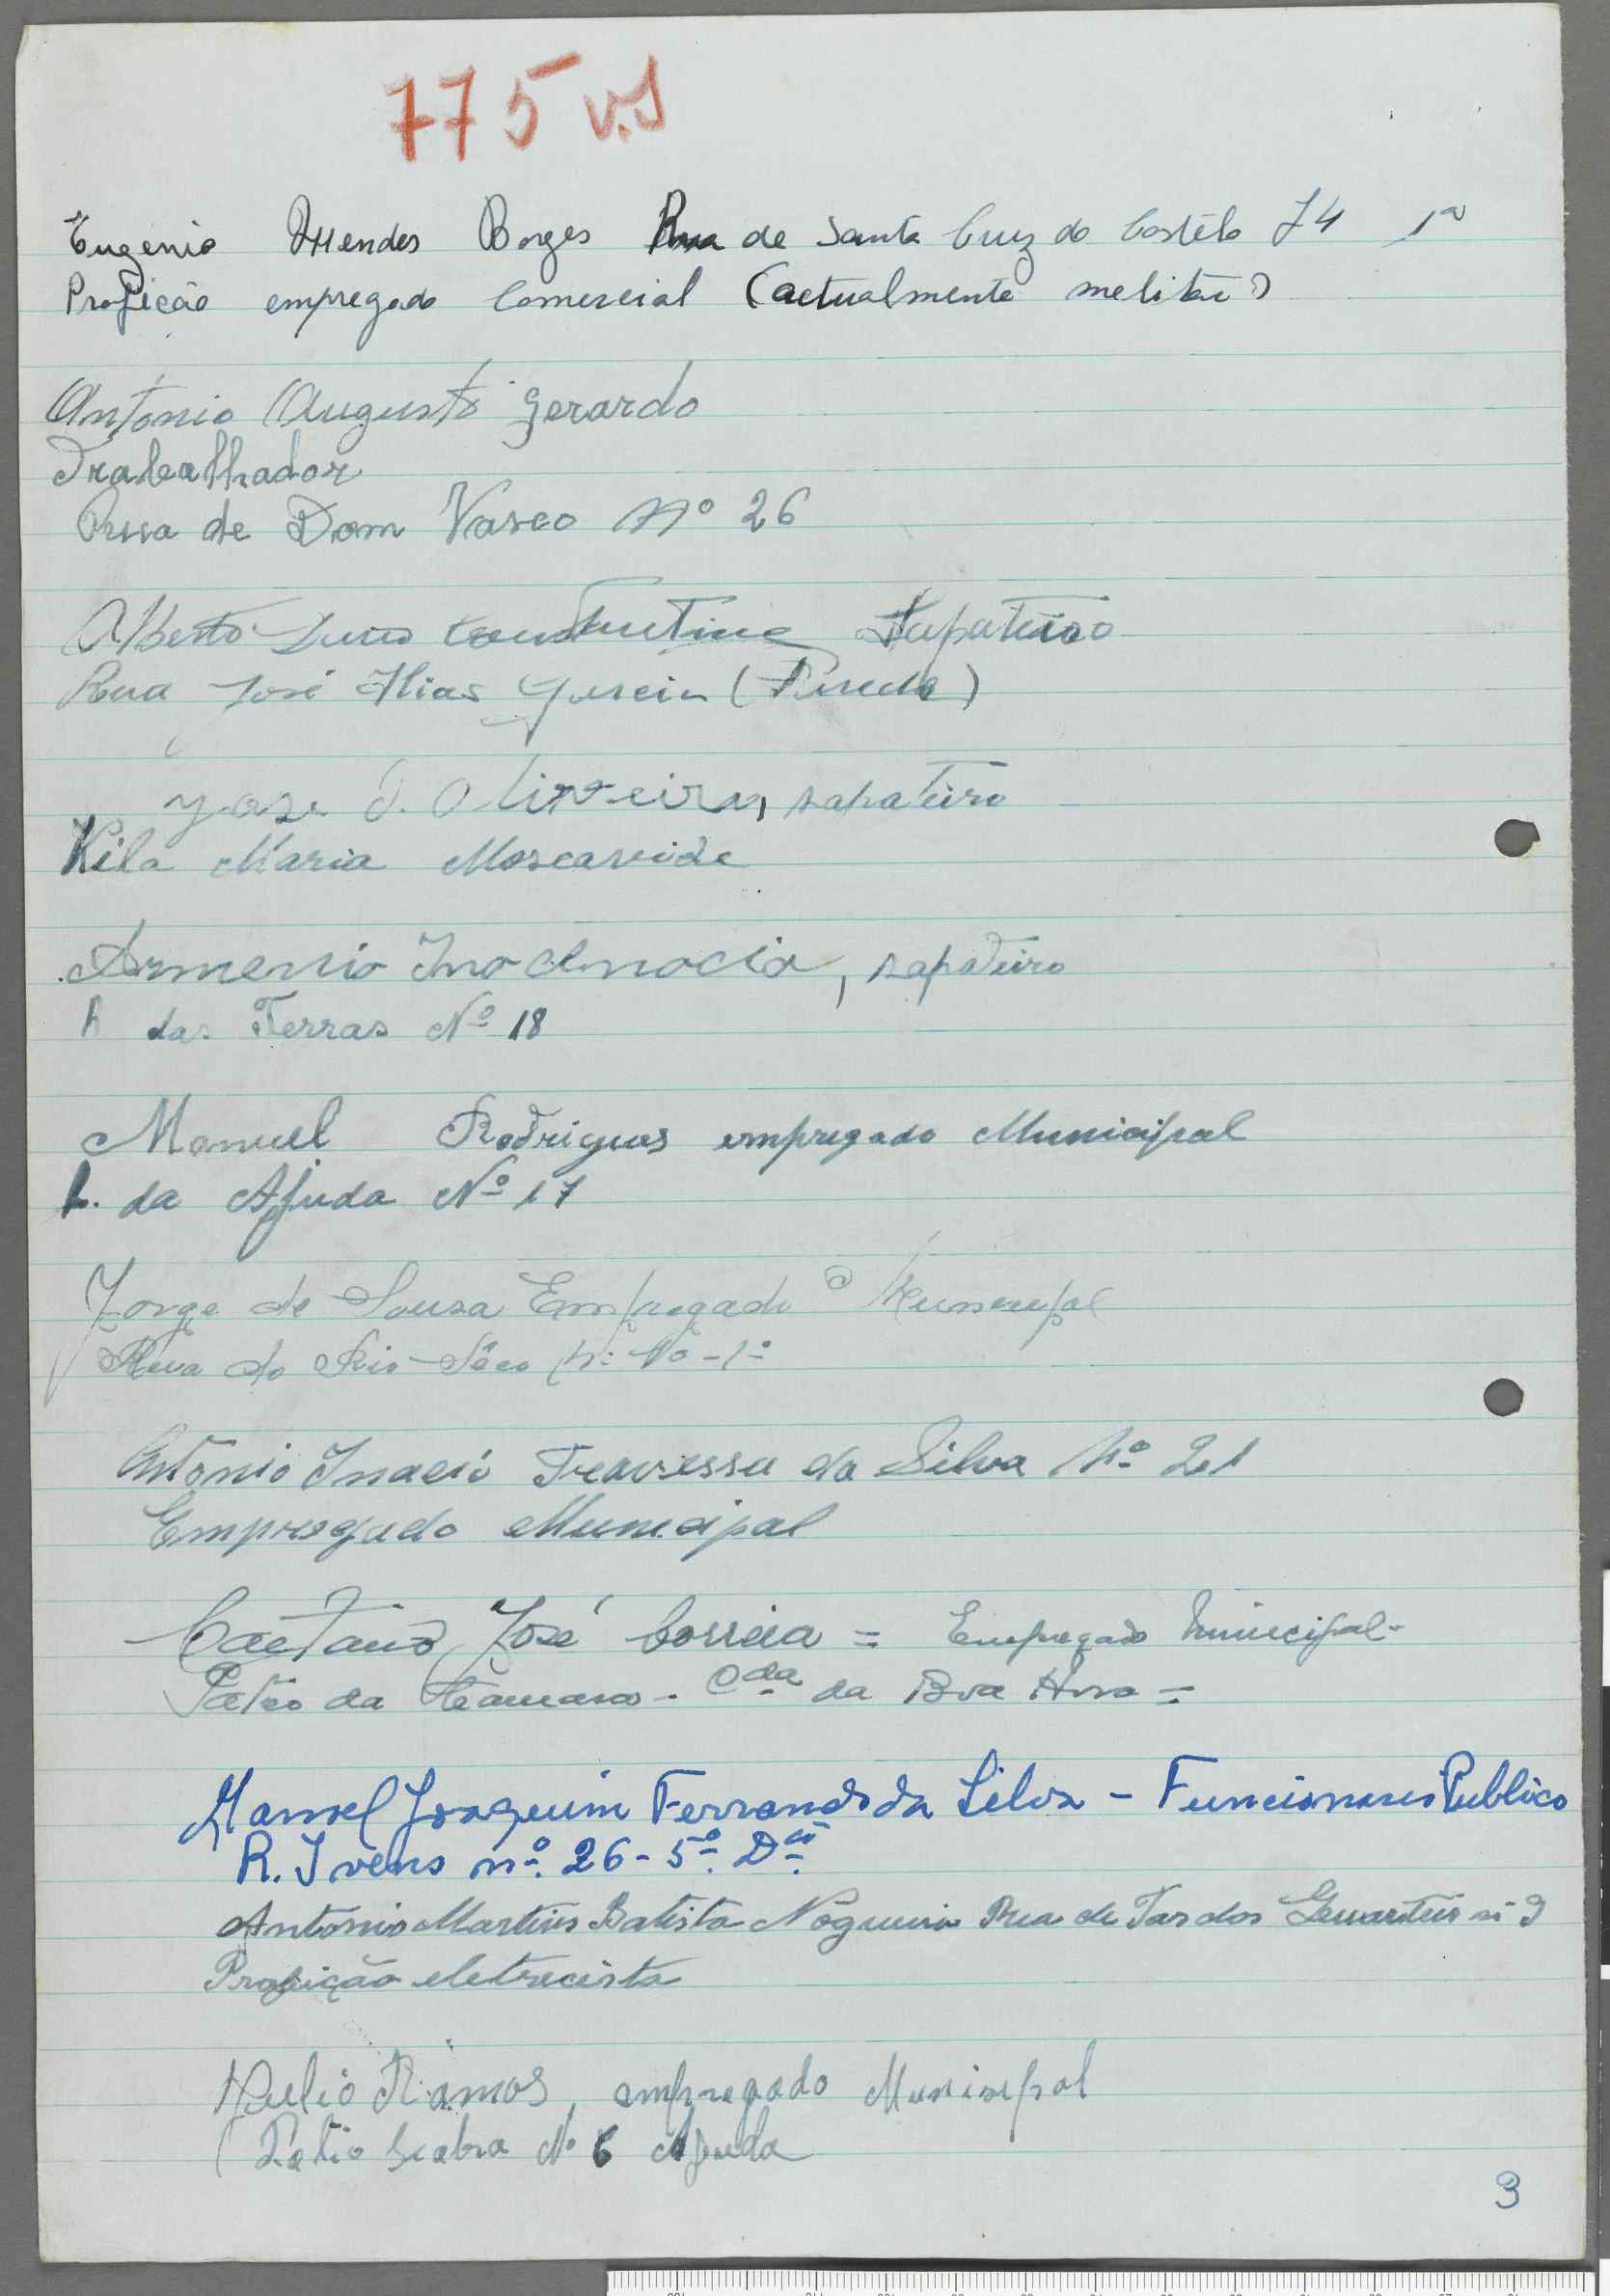 775 v.S
Eugenio Mendes Borges Rua de Santa Cruz do Castelo 74 1º
Profição empregado Comercial (actualmente melitar)
António Augusto Gerardo
Trabalhador
Rua de Dom Vasco Nº 26
Alberto Constantino Sapateiro
Rua José Elias Garcia (Parede)
José d. Oliveira, sapateiro
Vila Maria Moscavide
Armenio Inocencio, sapateiro
R das Terras Nº 18
Manuel Rodrigues empregado Municipal
L. da Ajuda Nº 17
Jorge de Sousa Empregado Municipal
Rua do Rio-Sêco Nº 10-1º
António Inacio Travessa da Silva Nº 21
Empregado Municipal
Caetano José Correia = Empregado Municipal-
Pateo da Camara - Cda da Boa Hora =
Manuel Joaquim Ferrando da Silva - Funcionario Publico
R. Ivens nº 26-5º Dtº
Antonio Martins Batista Nogueira Rua de
Profição eletrecista
Julio Ramos, empregado Municipal
Patio Seabra Nº 6 Ajuda
3